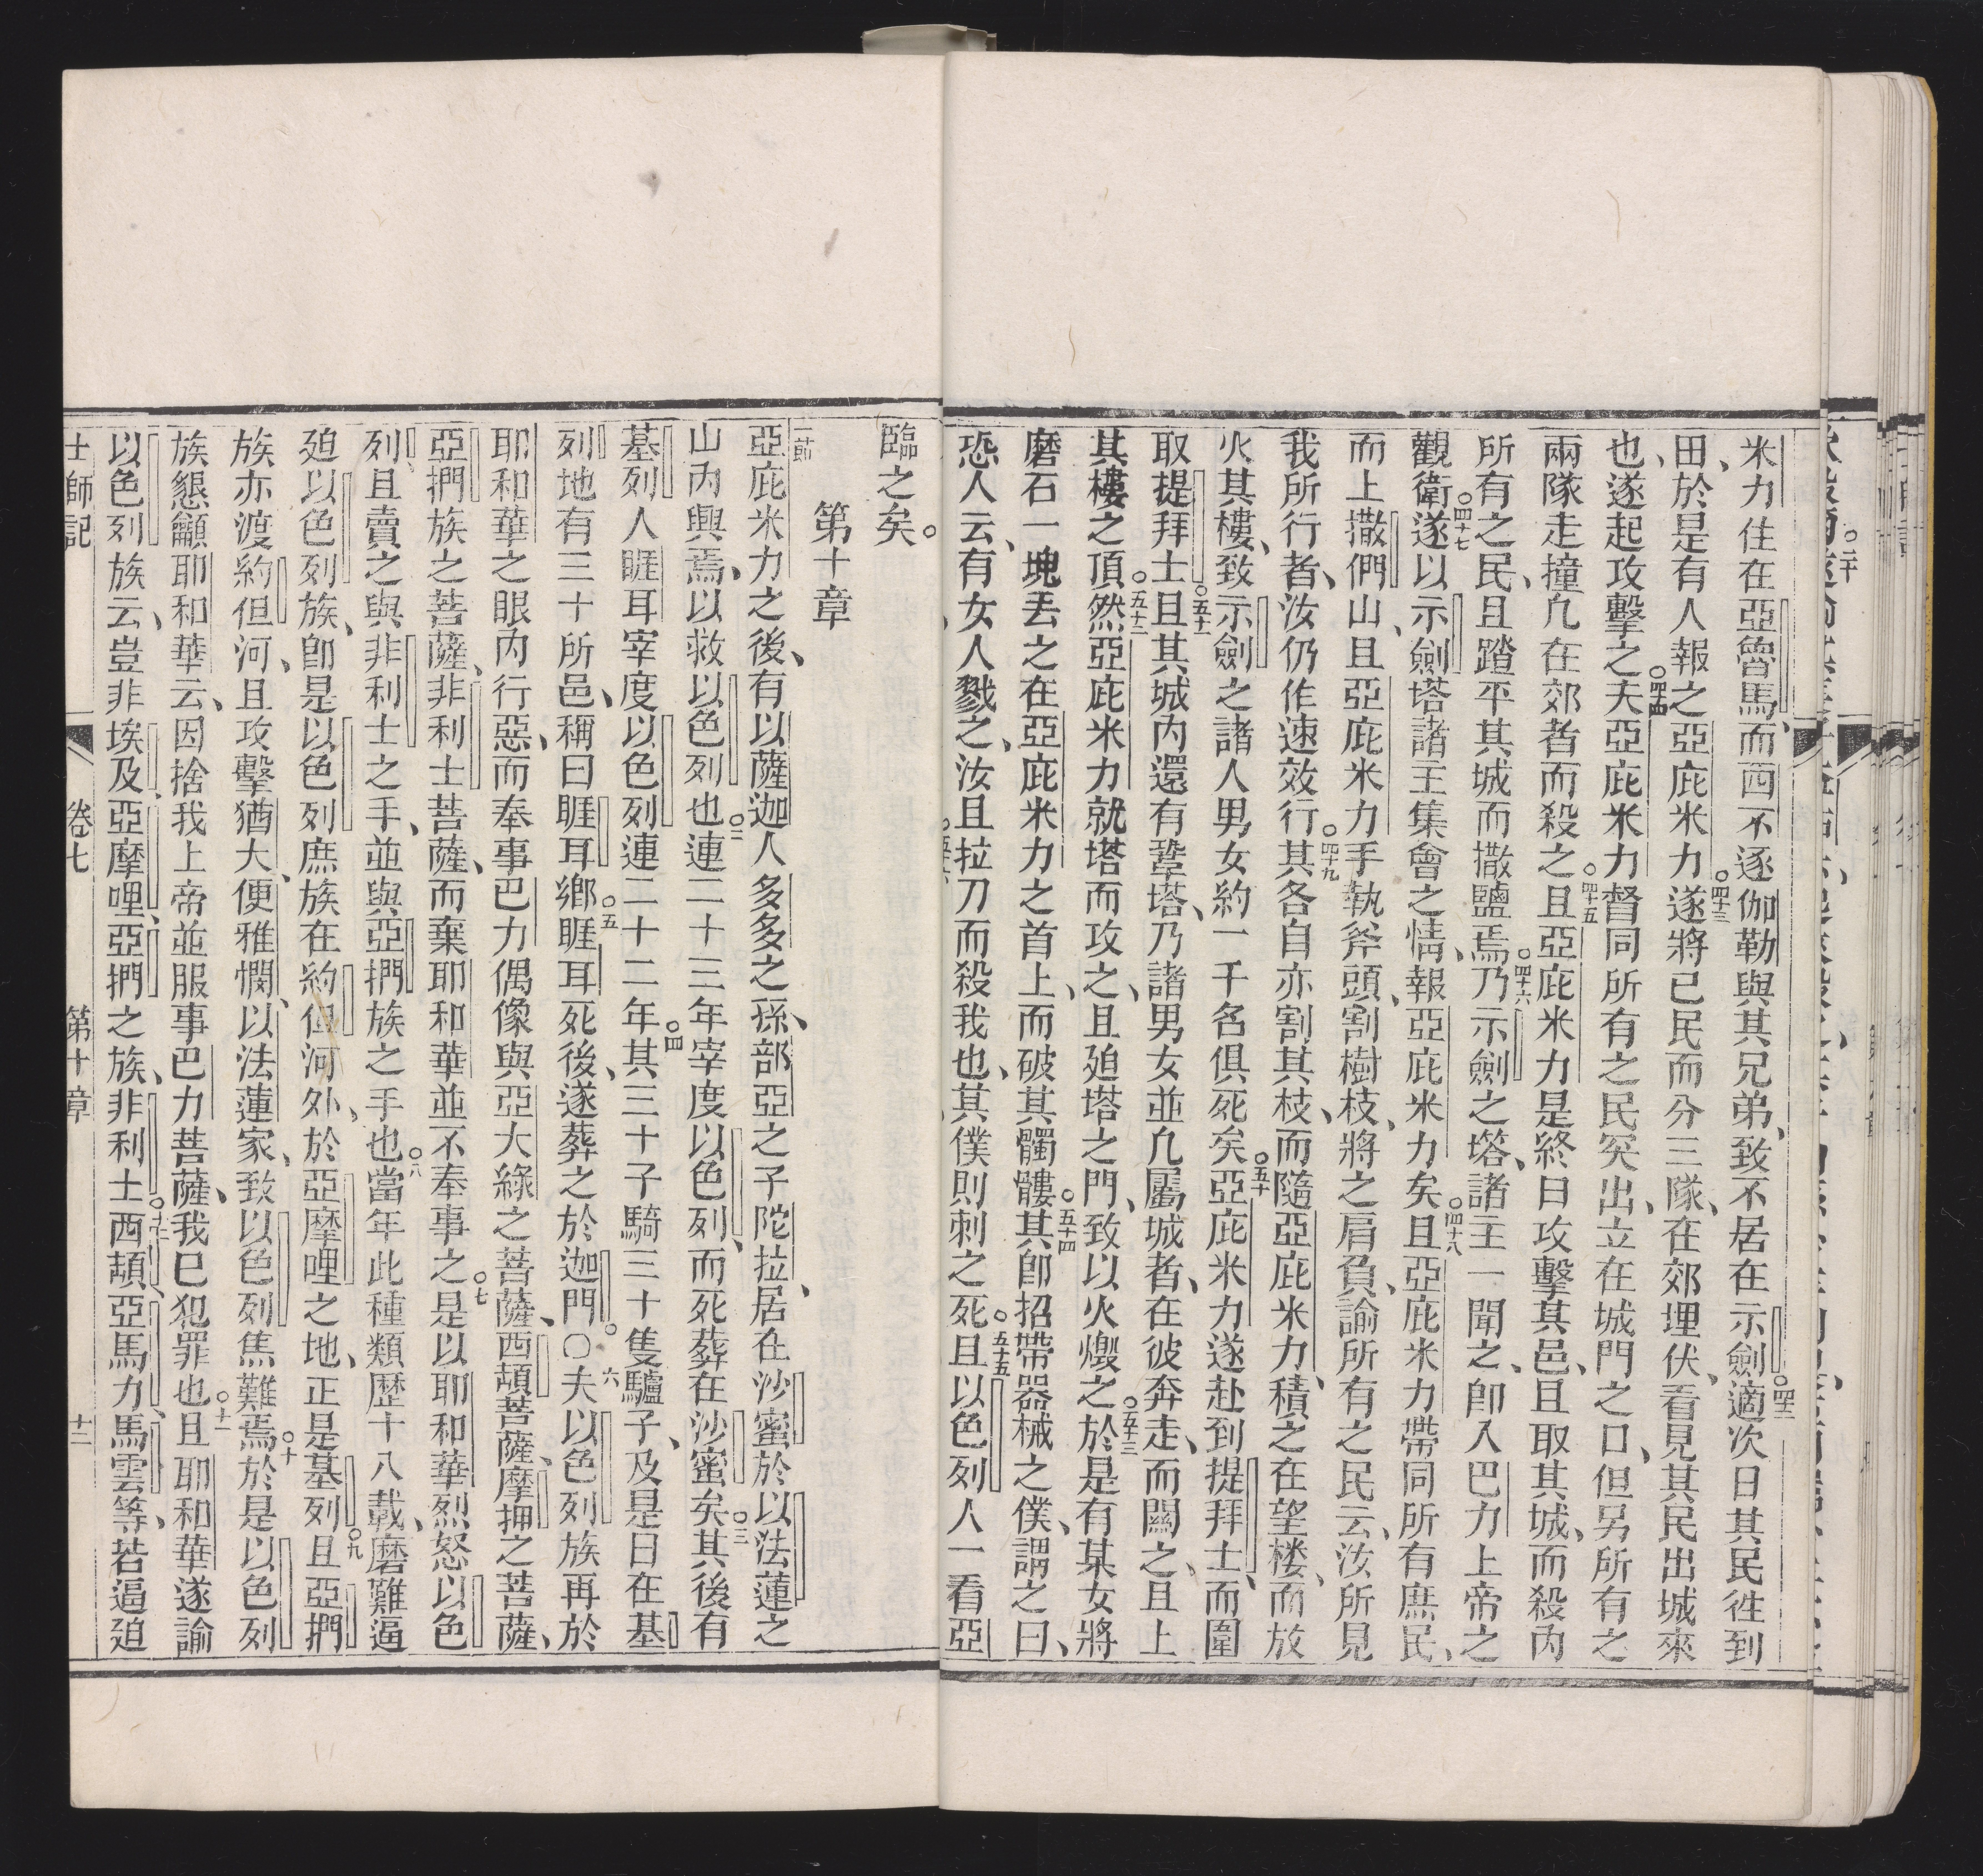 米力住在亞魯馬、而西不逐伽勒與其兄弟、致不居在示劍○四十二適次日其民徃到
田、於是有人報之亞庇米力○四十三遂將已民而分三隊、在郊埋伏、看見其民出城來
也、遂起攻擊之○四十四夫亞庇米力督同所有之民突出、立在城門之口、但另所有之
兩隊走撞凢在郊者而殺之○四十五且亞庇米力是終日攻擊其邑、且取其城、而殺內
所有之民、且踏平其城而撒鹽焉○四十六乃示劍之塔、諸主一聞之、卽入巴力上帝之
觀衛○四十七遂以示劍塔諸主集會之情、報亞庇米力矣○四十八且亞庇米力帶同所有庶民、
而上撒們山、且亞庇米力手執斧頭、割樹枝、將之肩負、諭所有之民云、汝所見
我所行者、汝仍作速效行○四十九其各自亦割其枝、而隨亞庇米力、積之在望楼、而放
火其樓、致示劍之諸人男女約一千名俱死矣○五十亞庇米力遂赴到提拜士、而圍
取提拜士○五十一且其城內還有鞏塔、乃諸男女並凢屬城者、在彼奔走、而闗之、且上
其樓之頂○五十二然亞庇米力就塔而攻之、且廹塔之門、致以火燬之○五十三於是有某女將
磨石一塊丟之在亞庇米力之首上、而破其髑髏○五十四其卽招帶器械之僕、謂之曰、
恐人云、有女人戮之、汝且拉刀而殺我也、其僕則刺之死○五十五且以色列人一看亞
臨之矣。
第十章
一節亞庇米力之後、有以薩迦人多多之孫、部亞之子陀拉、居在沙蜜於以法蓮之
山內興焉、以救以色列也○二連二十三年宰度以色列、而死葬在沙蜜矣○三其後有
基列人睚耳宰度以色列連二十二年○四其三十子騎三十隻驢子、及是日在基
列地有三十所邑、稱曰睚耳鄉○五睚耳死後、遂葬之於迦門。○六夫以色列族再於
耶和華之眼內行惡、而奉事巴力偶像與亞大綠之菩薩、西頡菩薩、摩押之菩薩、
亞捫族之菩薩、非利士菩薩、而棄耶和華並不奉事之○七是以耶和華烈怒以色
列、且賣之與非利士之手、並與亞捫族之手也○八當年此種類歷十八載、磨難逼
廹以色列族、卽是以色列庶族在約但河外、於亞摩哩之地、正是基列○九且亞捫
族亦渡約但河、且攻擊猶大、便雅憫、以法蓮家、致以色列焦難焉○十於是以色列
族懇籲耶和華云、因捨我上帝並服事巴力菩薩、我已犯罪也○十一且耶和華遂諭
以色列族云、豈非埃及、亞摩哩、亞捫之族、非利士○十二西頡、亞馬力、馬雲等、若逼廹
士師記　卷七　第十章　十二